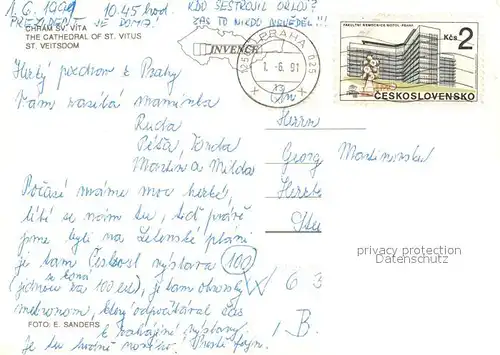 1.6.1991 10.45 hod. KDO SESTROJIL ORLOJ?
PREZIDENT JE DOMA! ZAS TO NIKDO NEVĚDĚL!!!
CHRÁM SV. VÍTA
THE CATHEDRAL OF ST. VITUS
ST. VEITSDOM
INVENCE
PRAHA 025
1.-6.91
FAKULTNÍ NEMOCNICE MOTOL-PRAHA
Kčs 2
ČESKOSLOVENSKO
Hezký pozdrav z Prahy
Vám zasílá maminka
Ruda
Péťa, Jonda
Martin a Milda
Herrn
Georg
Počasí máme moc hezké,
líbí se nám tu, teď právě
jsme byli na Letenské pláni
je tam Českosl výstava 100
(jednou za 100 let), je tam obrovský
metronom, který odpočítával čas
k zahájení výstavy.
je tu hodně
W 63
1 B.
FOTO: E. SANDERS
privacy protection
Datenschutz